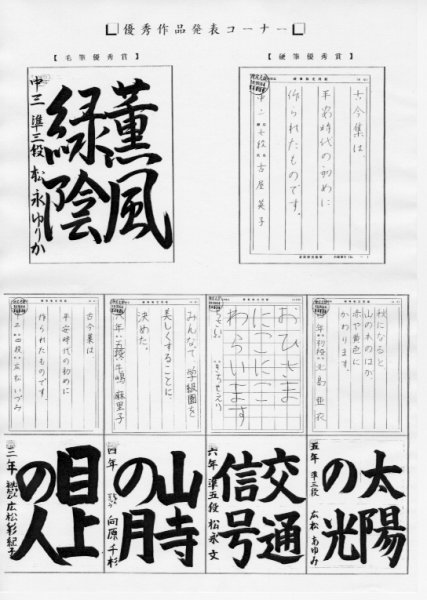 優秀作品発表コーナー
【毛筆優秀賞】
【硬筆優秀賞】
薫風
緑陰
中三 準三段 松永ゆりか
古今集は
平安時代の初めに
作られたものです。
古屋英子
秋になると
山の木のはが
赤や黄色に
かわります。
おひさま
にこにこ
わらいます
みんなで学級園を
美しくすることに
決めた。
六年 五段 牛嶋麻里子
古今集は
平安時代の初めに
作られたものです。
太陽
の光
五年 準三段 広松あゆみ
交通
信号
六年 準五段 松永文
山寺
の月
四年 向原千杉
目上
の人
三年 広松彩紀子